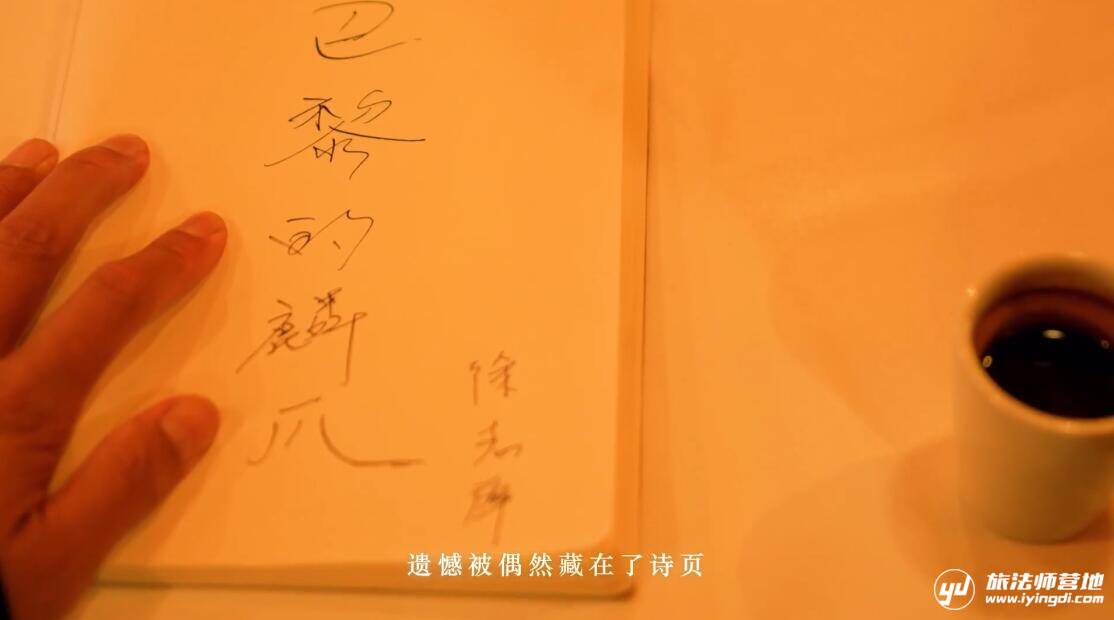 巴黎的麟爪
徐志摩
遗憾被偶然藏在了诗页
旅法师营地
www.iyingdi.com